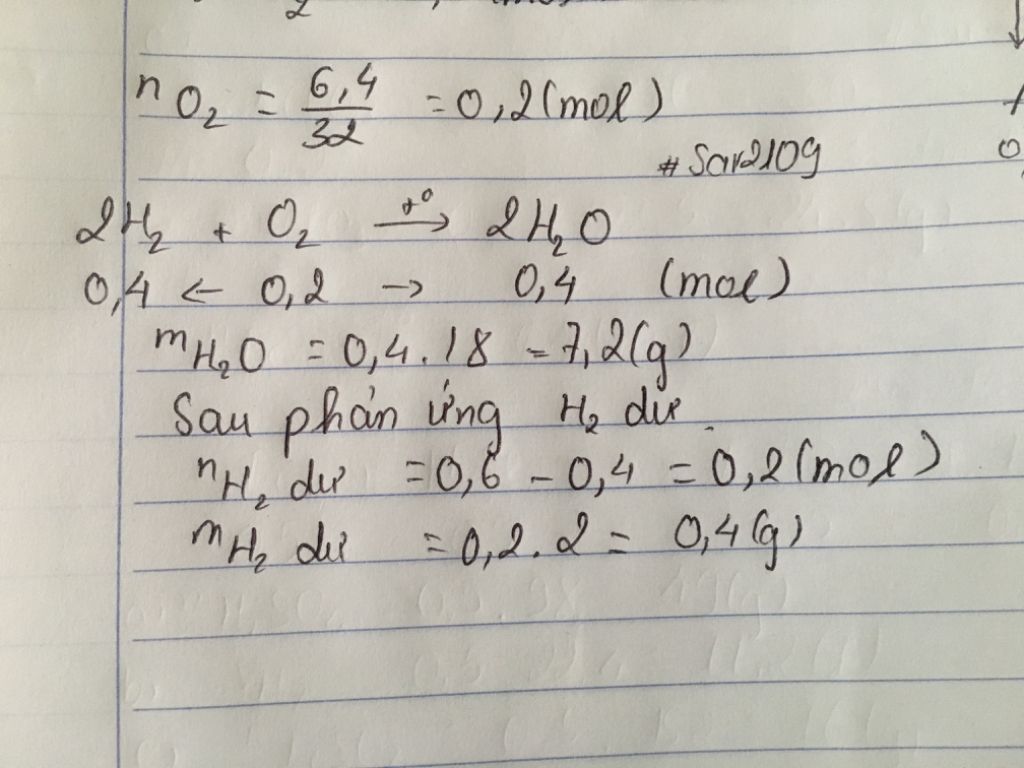 n O₂ = 6,4/32 = 0,2 (mol)
# Sar2109
2H₂ + O₂ —t°→ 2H₂O
0,4 ← 0,2 → 0,4 (mol)
m H₂O = 0,4 . 18 = 7,2 (g)
Sau phản ứng H₂ dư
n H₂ dư = 0,6 - 0,4 = 0,2 (mol)
m H₂ dư = 0,2 . 2 = 0,4 (g)